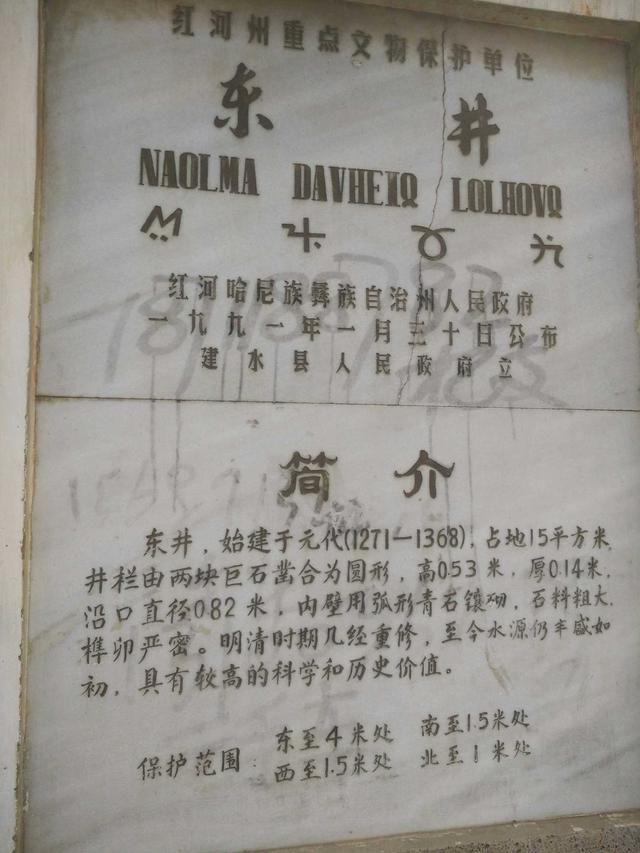 红河州重点文物保护单位
东井
NAOLMA DAVHEIQ LOLHOVQ
红河哈尼族彝族自治州人民政府
一九九一年一月三十日公布
建水县人民政府立
简介
东井，始建于元代(1271—1368)，占地15平方米，
井栏由两块巨石凿合为圆形，高0.53米，厚0.14米，
沿口直径0.82米，内壁用弧形青石镶砌，石料粗大，
榫卯严密。明清时期几经重修，至今水源仍丰盛如
初，具有较高的科学和历史价值。
保护范围：东至4米处 南至1.5米处
西至1.5米处 北至1米处